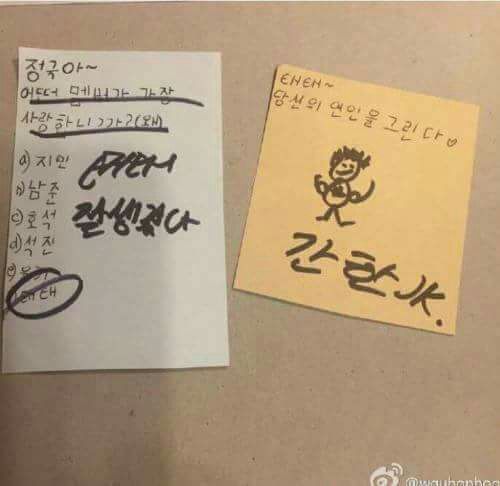 정국아~
멤버가 가장
사랑하니까?(왜)
a) 지민
b) 남준
c) 호석
d) 석진
e)
태태
잘생겼다
태태~
당신의 연인을 그린다♡
간탄 JK.